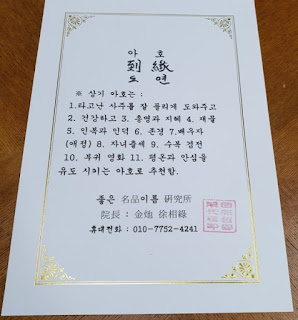 아 호
到 緻
도 연
※ 상기 아호는 :
1.타고난 사주를 잘 풀리게 도와주고
2. 건강하고 3. 총명과 지혜 4. 재물
5. 인복과 인덕 6. 존경 7.배우자
(애정) 8. 자녀출세 9. 수복 겸전
10. 부귀 영화 11. 평온과 안심을
유도 시키는 아호로 추천함.
좋은 名品이름 硏究所
院長 : 金灺 徐相綠
휴대전화 : 010-7752-4241